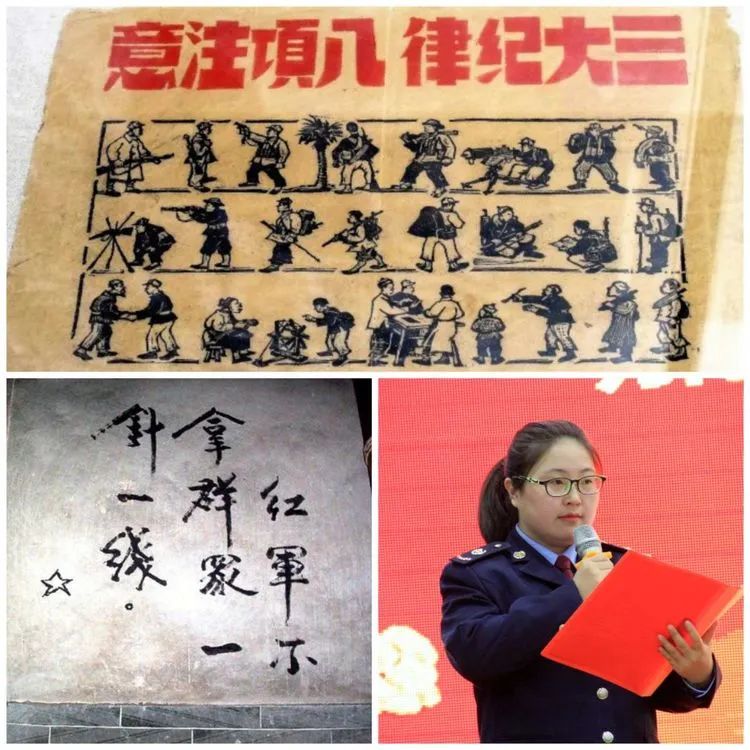 三大纪律 八項注意
红軍不
拿群眾一
針一綫。